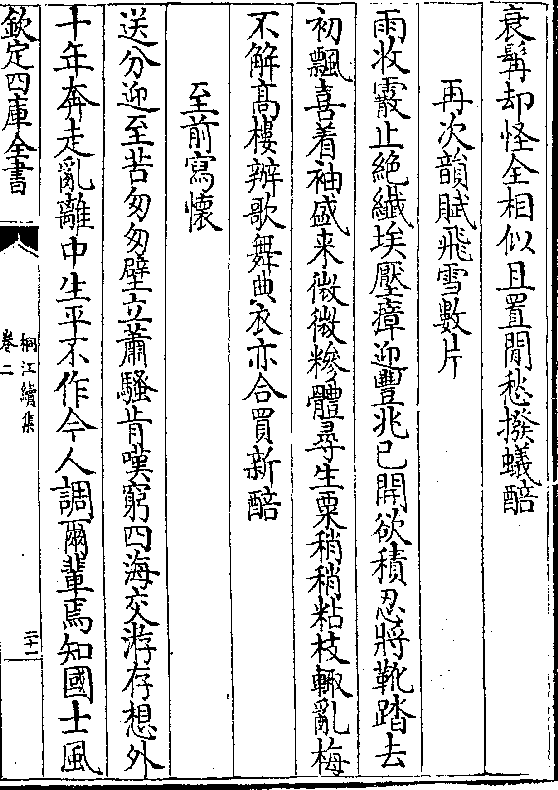 衰髩却怪全相似且置閒愁撥蟻醅
再次韻賦飛雪數片
雨收霰止絶纎埃壓瘴迎豐兆已開欲積忍將靴踏去
初飄喜着袖盛来微微糝體尋生粟稍稍粘枝輙亂梅
不解髙樓辦歌舞典衣亦合買新醅
至前寫懷
送分迎至苦匆匆壁立蕭騷肯嘆窮四海交游存想外
十年奔走亂離中生平不作今人調爾輩焉知國士風
欽定四庫全書
桐江續集
卷二
二十一